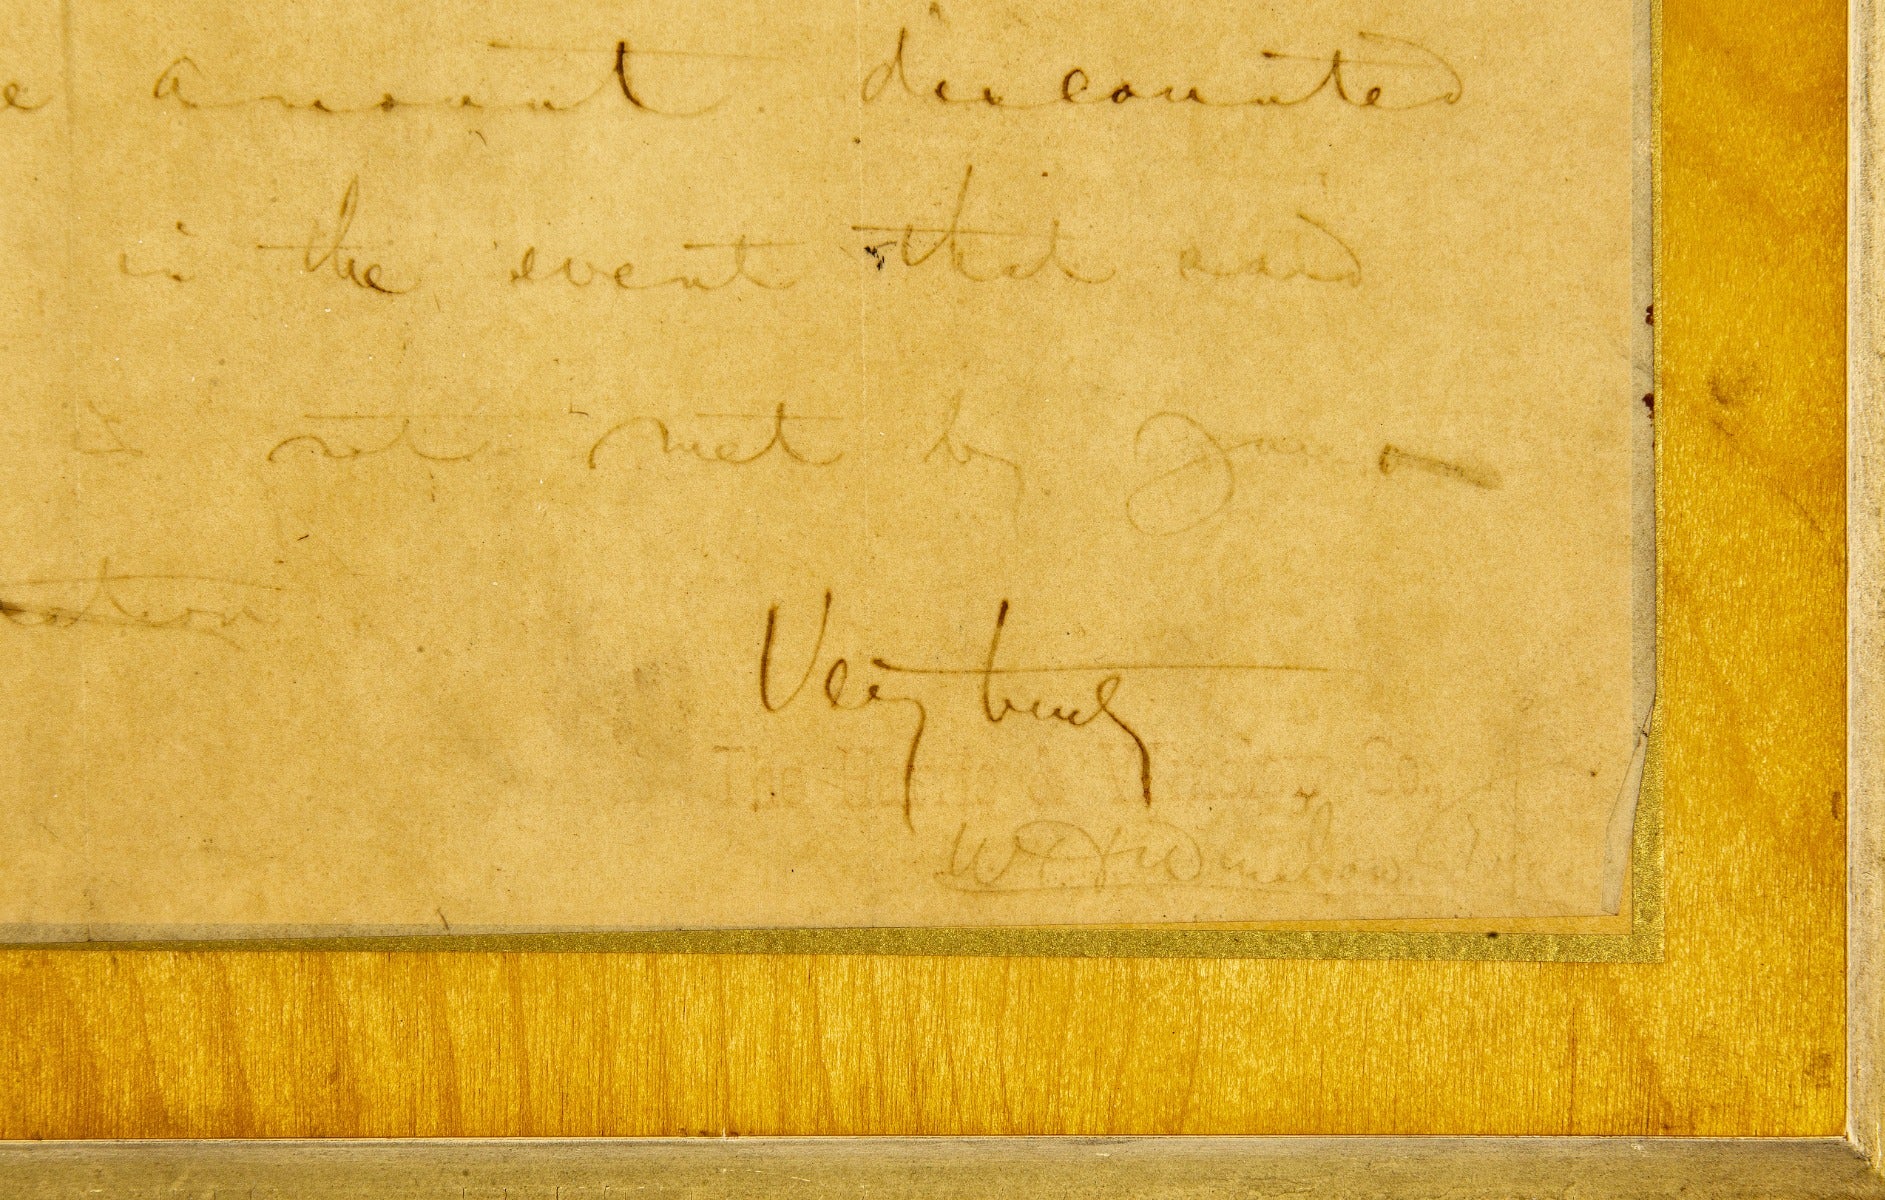 e amount discounted
in the event that said
is not met by your
Very truly
Co.